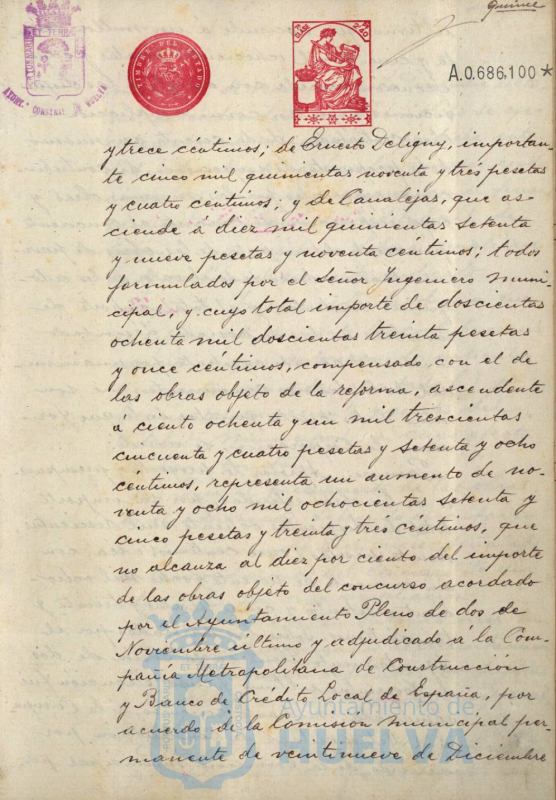 Quince
TIMBRE DEL ESTADO
A.0.686,100*
y trece céntimos; de Ernesto Deligny, importan-
te cinco mil quinientas noventa y tres pesetas
y cuatro céntimos; y de Canalejas, que as-
ciende á diez mil quinientas setenta
y nueve pesetas y noventa céntimos; todos
formulados por el Señor Ingeniero muni-
cipal, y cuyo total importe de doscientas
ochenta mil doscientas treinta pesetas
y once céntimos, compensado con el de
las obras objeto de la reforma, ascendente
á ciento ochenta y un mil trescientas
cincuenta y cuatro pesetas y setenta y ocho
céntimos, representa un aumento de no-
venta y ocho mil ochocientas setenta y
cinco pesetas y treinta y tres céntimos, que
no alcanza al diez por ciento del importe
de las obras objeto del concurso acordado
por el Ayuntamiento Pleno de dos de
Noviembre último y adjudicado á la Com-
pañía Metropolitana de Construcción
y Banco de Crédit Local de España, por
acuerdo de la Comisión municipal per-
manente de veintinueve de Diciembre
Ayuntamiento de
HUELVA